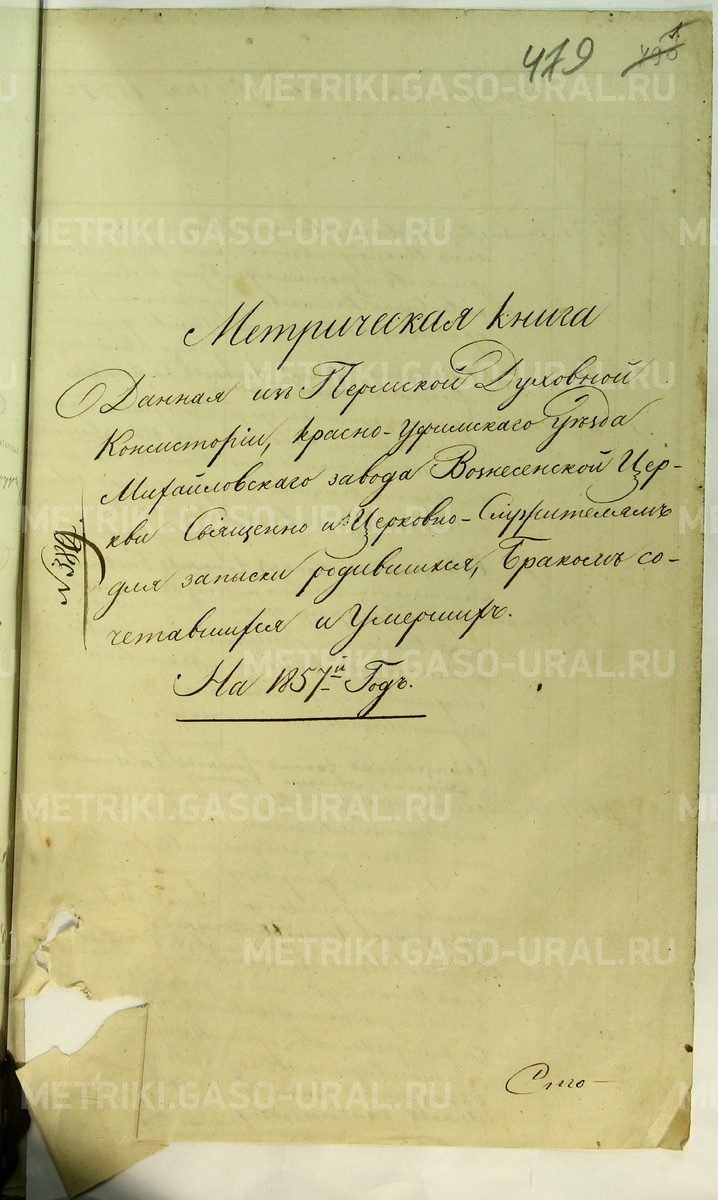 479
Метрическая книга
Данная изъ Пермской Духовной
Консисторіи, красно-уфимскаго Уѣзда
Михайловскаго завода Вознесенской Цер-
кви Священно и Церковно-Служителямъ
для записки родившихся, Бракомъ со-
четавшихся и Умершихъ.
На 1857й Годъ.
Сто
METRIKI.GASO-URAL.RU